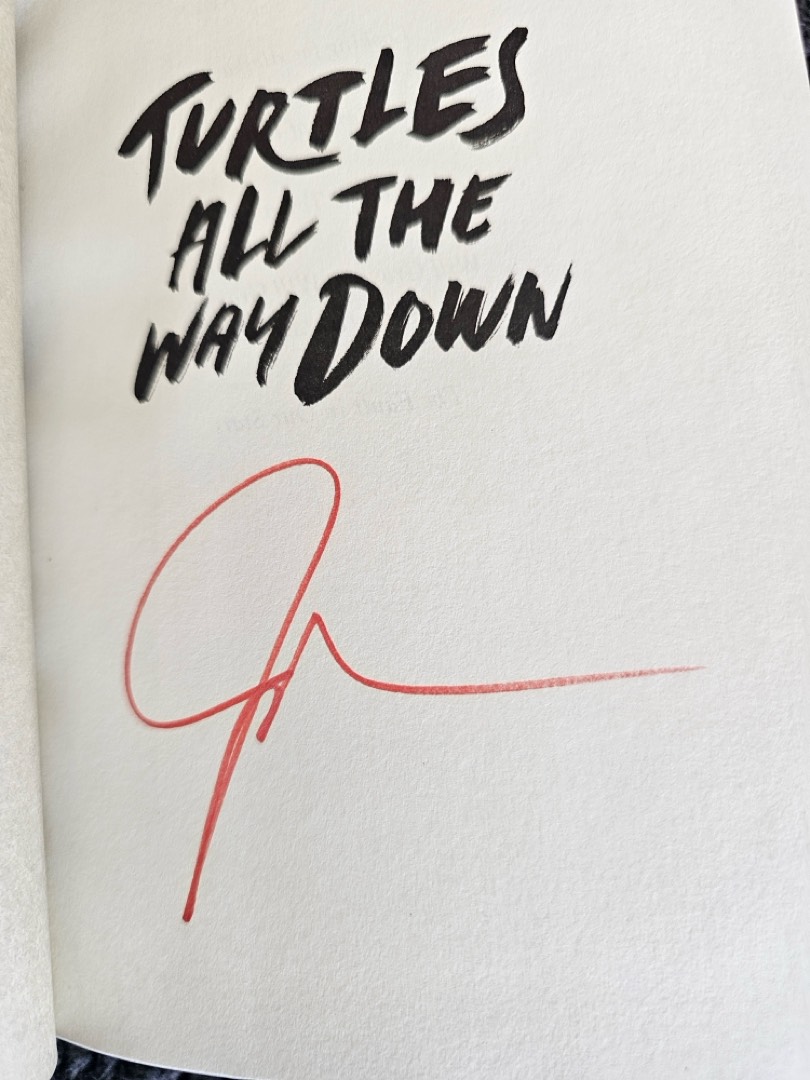 TURTLES
ALL THE
WAY DOWN